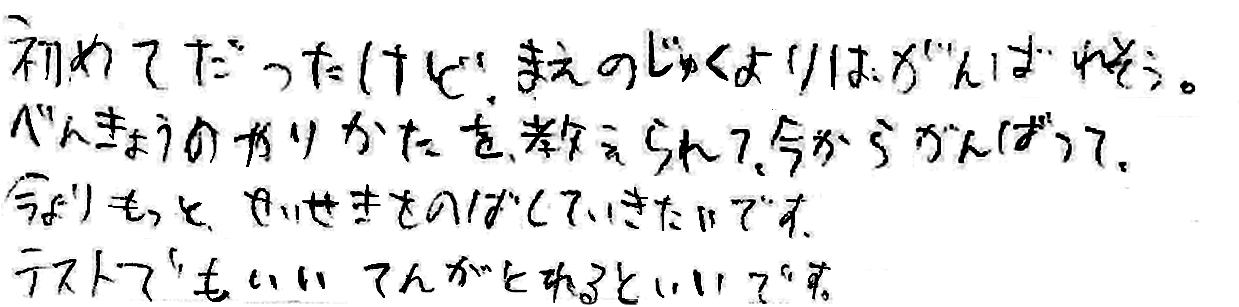 初めてだったけど、まえのじゅくよりは、がんばれそう。
べんきょうのやりかたを、教えられて、今からがんばって、
今よりもっと、せいせきをのばしていきたいです。
テストでもいいてんがとれるといいです。